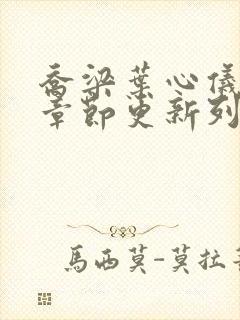 乔梁葉心儀
章節更新列
馬西莫-莫拉